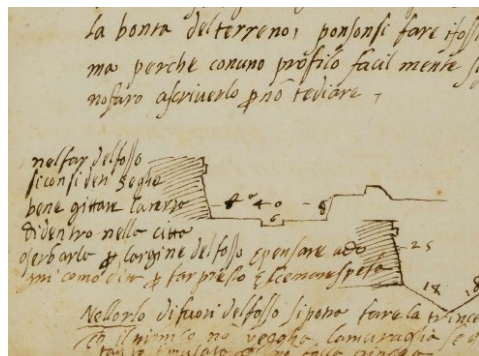 la bonta delterreno, ponsonsi fare ifossi
ma perche conuno profilo facil mente si
nofaro ascriverlo p no tediare,
nelfar delfosso
siconsideri seglie
bene gittare laterra
didentro nella citta
oserbarla p largine delfosso epensare ado
gni comodita p far presto
40
8
6
25
18
18
Nellorlo difuori delfosso sipotra fare la trince
il nimico no vegha lamuraglia